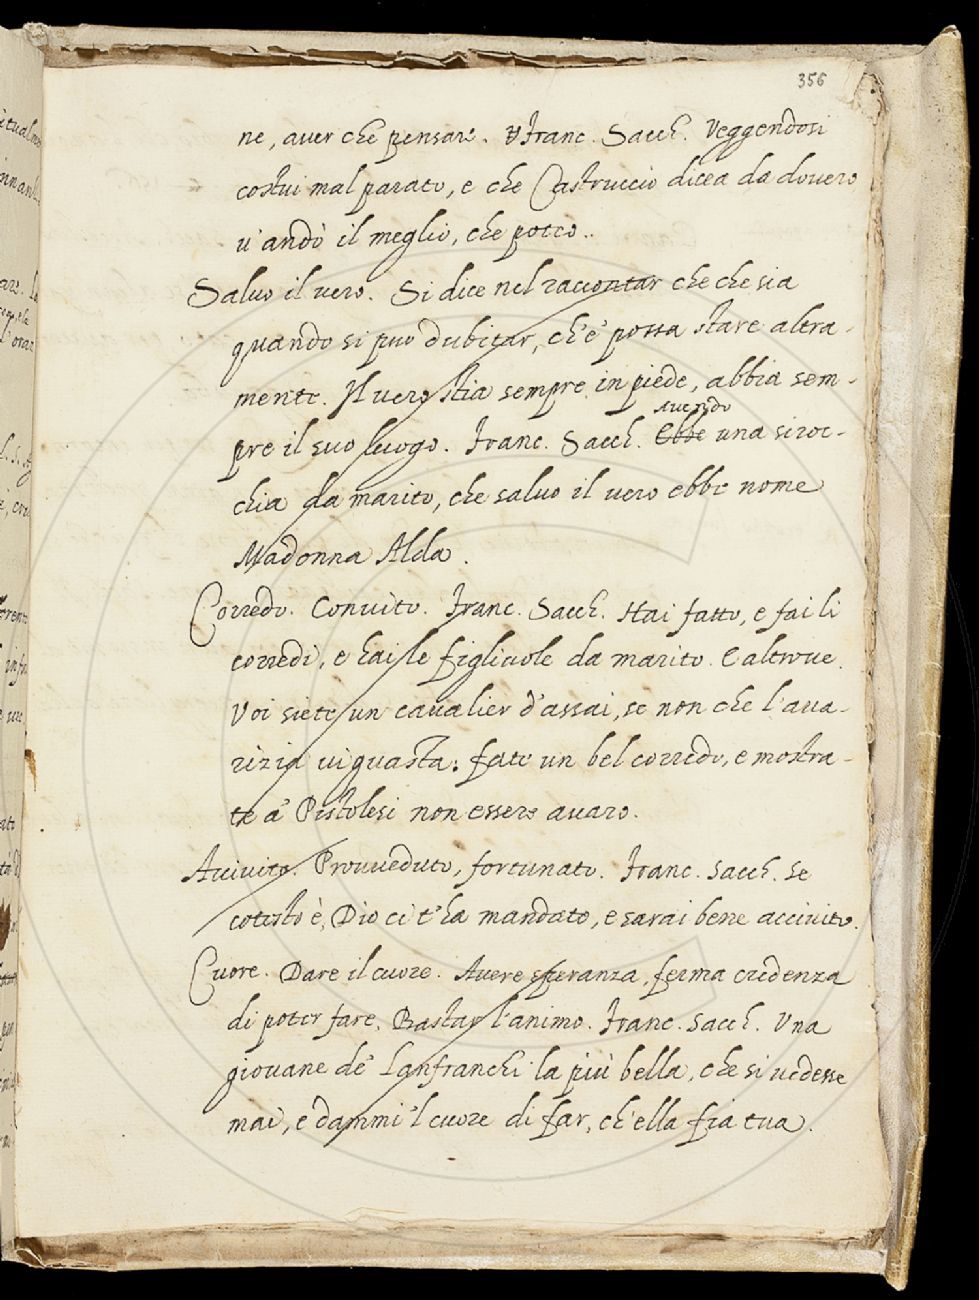 356
ne, aver che pensare. Franc. Sacch. Veggendosi
costui mal parato, e che Castruccio dicea da dovero
v'andò il meglio, che potéo.
Salvo il vero. Si dice nel raccontar che che sia
quando si può dubitar, ch'e' possa stare altra-
mente. Il vero stia sempre in piede, abbia sem-
avendo
pre il suo luogo. Franc. Sacch. Ebbe una siroc-
chia da marito, che salvo il vero ebbe nome
Madonna Alda.
Corredo. Convito. Franc. Sacch. Hai fatto, e fai li
corredi, e hai le figliuole da marito. E altrove.
Voi siete un cavalier d'assai, se non che l'ava-
rizia vi guasta: fate un bel corredo, e mostra-
te a' Pistolesi non essere avaro.
Accivito. Provveduto, fortunato. Franc. Sacch. Se
cotesto è, Dio ci t'ha mandato, e sarai bene accivito.
Cuore. Dare il cuore. Avere speranza, ferma credenza
di poter fare. Bastar l'animo. Franc. Sacch. Una
giovane de' Lanfranchi la più bella, che si vedesse
mai, e dammi 'l cuore di far, ch'ella fia tua.